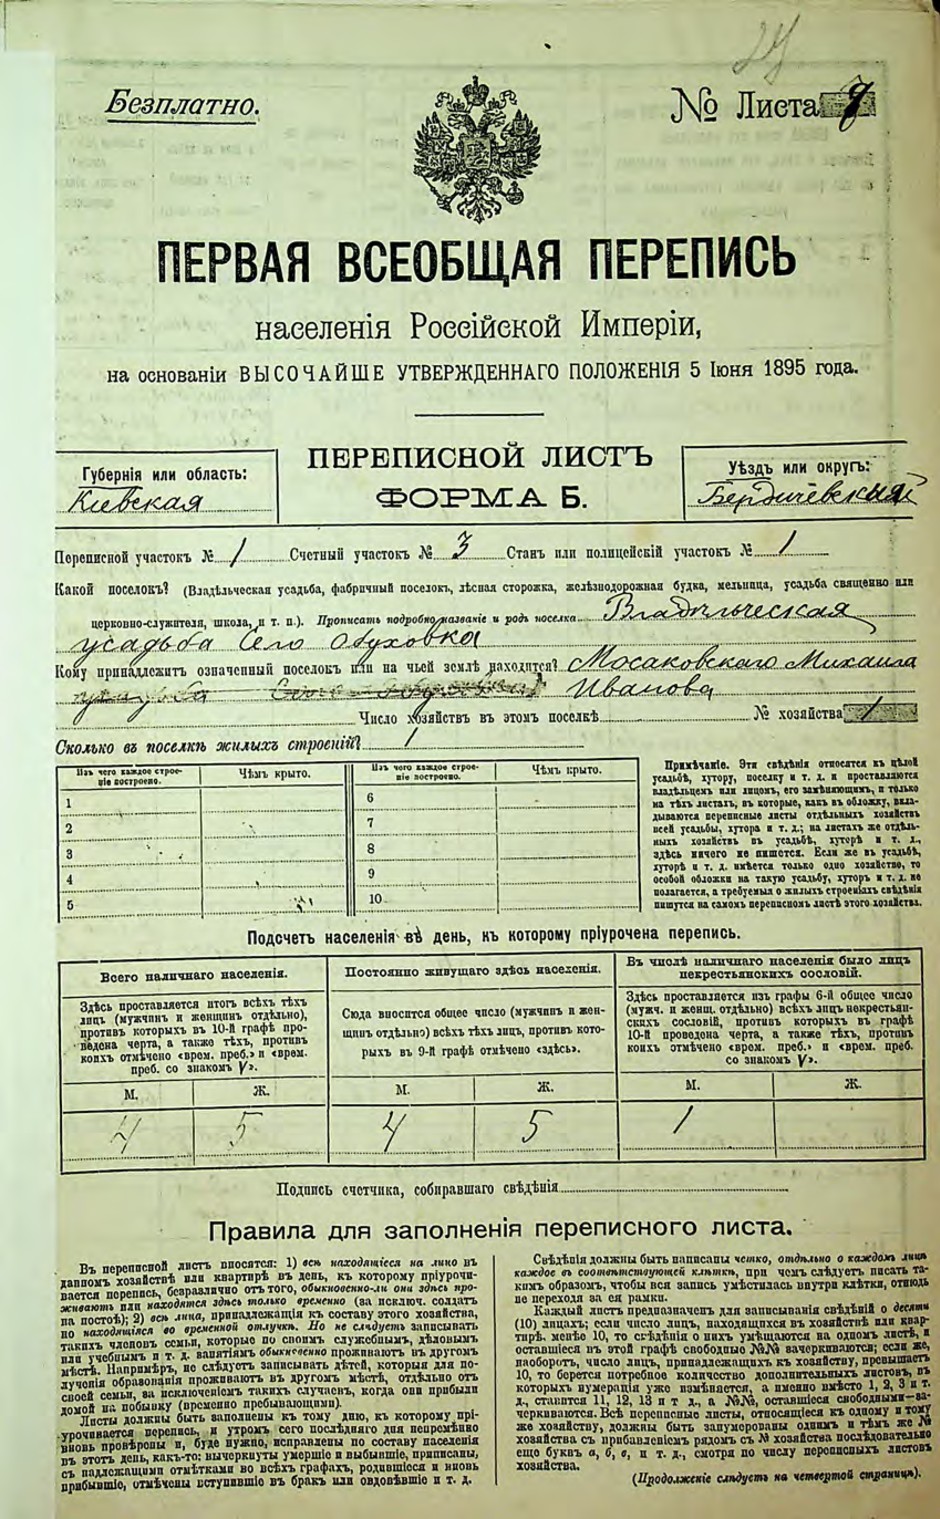 24
Безплатно.
№ Листа 7
ПЕРВАЯ ВСЕОБЩАЯ ПЕРЕПИСЬ
населенія Россійской Имперіи,
на основаніи ВЫСОЧАЙШЕ УТВЕРЖДЕННАГО ПОЛОЖЕНІЯ 5 Іюня 1895 года.
ПЕРЕПИСНОЙ ЛИСТЪ
ФОРМА Б.
Губернія или область:
Кіевская
Уѣздъ или округъ:
Бердичевскый
Переписной участокъ № 1 Счетный участокъ № 3 Станъ или полицейскій участокъ № 1
Какой поселокъ? (Владѣльческая усадьба, фабричный поселокъ, лѣсная сторожка, желѣзнодорожная будка, мельница, усадьба священно или
церковно-служителя, школа, и т. п.). Прописать подробно названіе и родъ поселка Владѣльческая
усадьба Село Обуховка
Кому принадлежитъ означенный поселокъ или на чьей землѣ находится? Мосаковскаго Михаила
Иванова
Число хозяйствъ въ этомъ поселкѣ № хозяйства 1
Сколько въ поселкѣ жилыхъ строеній? 1
Изъ чего каждое строеніе построено. Чѣмъ крыто. Изъ чего каждое строеніе построено. Чѣмъ крыто.
1 6
2 7
3 8
4 9
5 10
Примѣчаніе. Эти свѣдѣнія относятся къ цѣлой
усадьбѣ, хутору, поселку и т. д. и проставляются
владѣльцемъ или лицомъ, его замѣняющимъ, и только
на тѣхъ листахъ, въ которые, какъ въ обложку, вкла-
дываются переписные листы отдѣльныхъ хозяйствъ
всей усадьбы, хутора и т. д.; на листахъ же отдѣль-
ныхъ хозяйствъ въ усадьбѣ, хуторѣ и т. д.,
здѣсь ничего не пишется. Если же въ усадьбѣ,
хуторѣ и т. д. имѣется только одно хозяйство, то
особой обложки на такую усадьбу, хуторъ и т. д. не
полагается, а требуемыя о жилыхъ строеніяхъ свѣдѣнія
пишутся на самомъ переписномъ листѣ этого хозяйства.
Подсчетъ населенія въ день, къ которому пріурочена перепись.
Всего наличнаго населенія.
Здѣсь проставляется итогъ всѣхъ тѣхъ
лицъ (мужчинъ и женщинъ отдѣльно),
противъ которыхъ въ 10-й графѣ про-
ведена черта, а также тѣхъ, противъ
коихъ отмѣчено «врем. преб.» и «врем.
преб. со знакомъ V».
М. Ж.
4 5
Постоянно живущаго здѣсь населенія.
Сюда вносится общее число (мужчинъ и жен-
щинъ отдѣльно) всѣхъ тѣхъ лицъ, противъ кото-
рыхъ въ 9-й графѣ отмѣчено «здѣсь».
М. Ж.
4 5
Въ числѣ наличнаго населенія было лицъ
некрестьянскихъ сословій.
Здѣсь проставляется изъ графы 6-й общее число
(мужч. и женщ. отдѣльно) всѣхъ лицъ некрестьян-
скихъ сословій, противъ которыхъ въ графѣ
10-й проведена черта, а также тѣхъ, противъ
коихъ отмѣчено «врем. преб.» и «врем. преб.
со знакомъ V».
М. Ж.
1
Подпись счетчика, собиравшаго свѣдѣнія
Правила для заполненія переписного листа.
Въ переписной листъ вносятся: 1) всѣ находящіеся на лицо въ
данномъ хозяйствѣ или квартирѣ въ день, къ которому пріурочи-
вается перепись, безразлично отъ того, обыкновенно-ли они здѣсь про-
живаютъ или находятся здѣсь только временно (за исключ. солдатъ
на постоѣ); 2) всѣ лица, принадлежащія къ составу этого хозяйства,
но находящіяся во временной отлучкѣ. Но не слѣдуетъ записывать
такихъ членовъ семьи, которые по своимъ служебнымъ, дѣловымъ
или учебнымъ и т. д. занятіямъ обыкновенно проживаютъ въ другомъ
мѣстѣ. Напримѣръ, не слѣдуетъ записывать дѣтей, которыя для по-
лученія образованія проживаютъ въ другомъ мѣстѣ, отдѣльно отъ
своей семьи, за исключеніемъ такихъ случаевъ, когда они прибыли
домой на побывку (временно пребывающими).
Листы должны быть заполнены къ тому дню, къ которому прі-
урочивается перепись, и утромъ сего послѣдняго дня непремѣнно
вновь провѣрены и, буде нужно, исправлены по составу населенія
въ этотъ день, какъ-то: вычеркнуты умершіе и выбывшіе, приписаны,
съ надлежащими отмѣтками во всѣхъ графахъ, родившіеся и вновь
прибывшіе, отмѣчены вступившіе въ бракъ или овдовѣвшіе и т. д.
Свѣдѣнія должны быть написаны четко, отдѣльно о каждомъ лицѣ
каждое въ соотвѣтствующей клѣткѣ, при чемъ слѣдуетъ писать та-
кимъ образомъ, чтобы вся запись умѣстилась внутри клѣтки, отнюдь
не переходя за ея рамки.
Каждый листъ предназначенъ для записыванія свѣдѣній о десяти
(10) лицахъ; если число лицъ, находящихся въ хозяйствѣ или квар-
тирѣ, менѣе 10, то свѣдѣнія о нихъ умѣщаются на одномъ листѣ, и
оставшіеся въ этой графѣ свободные №№ вачеркиваются; если же,
наоборотъ, число лицъ, принадлежащихъ къ хозяйству, превышаетъ
10, то берется потребное количество дополнительныхъ листовъ, въ
которыхъ нумерація уже измѣняется, а именно вмѣсто 1, 2, 3 и т.
д., ставится 11, 12, 13 и т д., а №№, оставшіеся свободными—за-
черкиваются. Всѣ переписные листы, относящіеся къ одному и тому
же хозяйству, должны быть занумерованы однимъ и тѣмъ же №
хозяйства съ прибавленіемъ рядомъ съ № хозяйства послѣдовательно
еще буквъ а, б, в, и т. д., смотря по числу переписныхъ листовъ
хозяйства.
(Продолженіе слѣдуетъ на четвертой страницѣ).